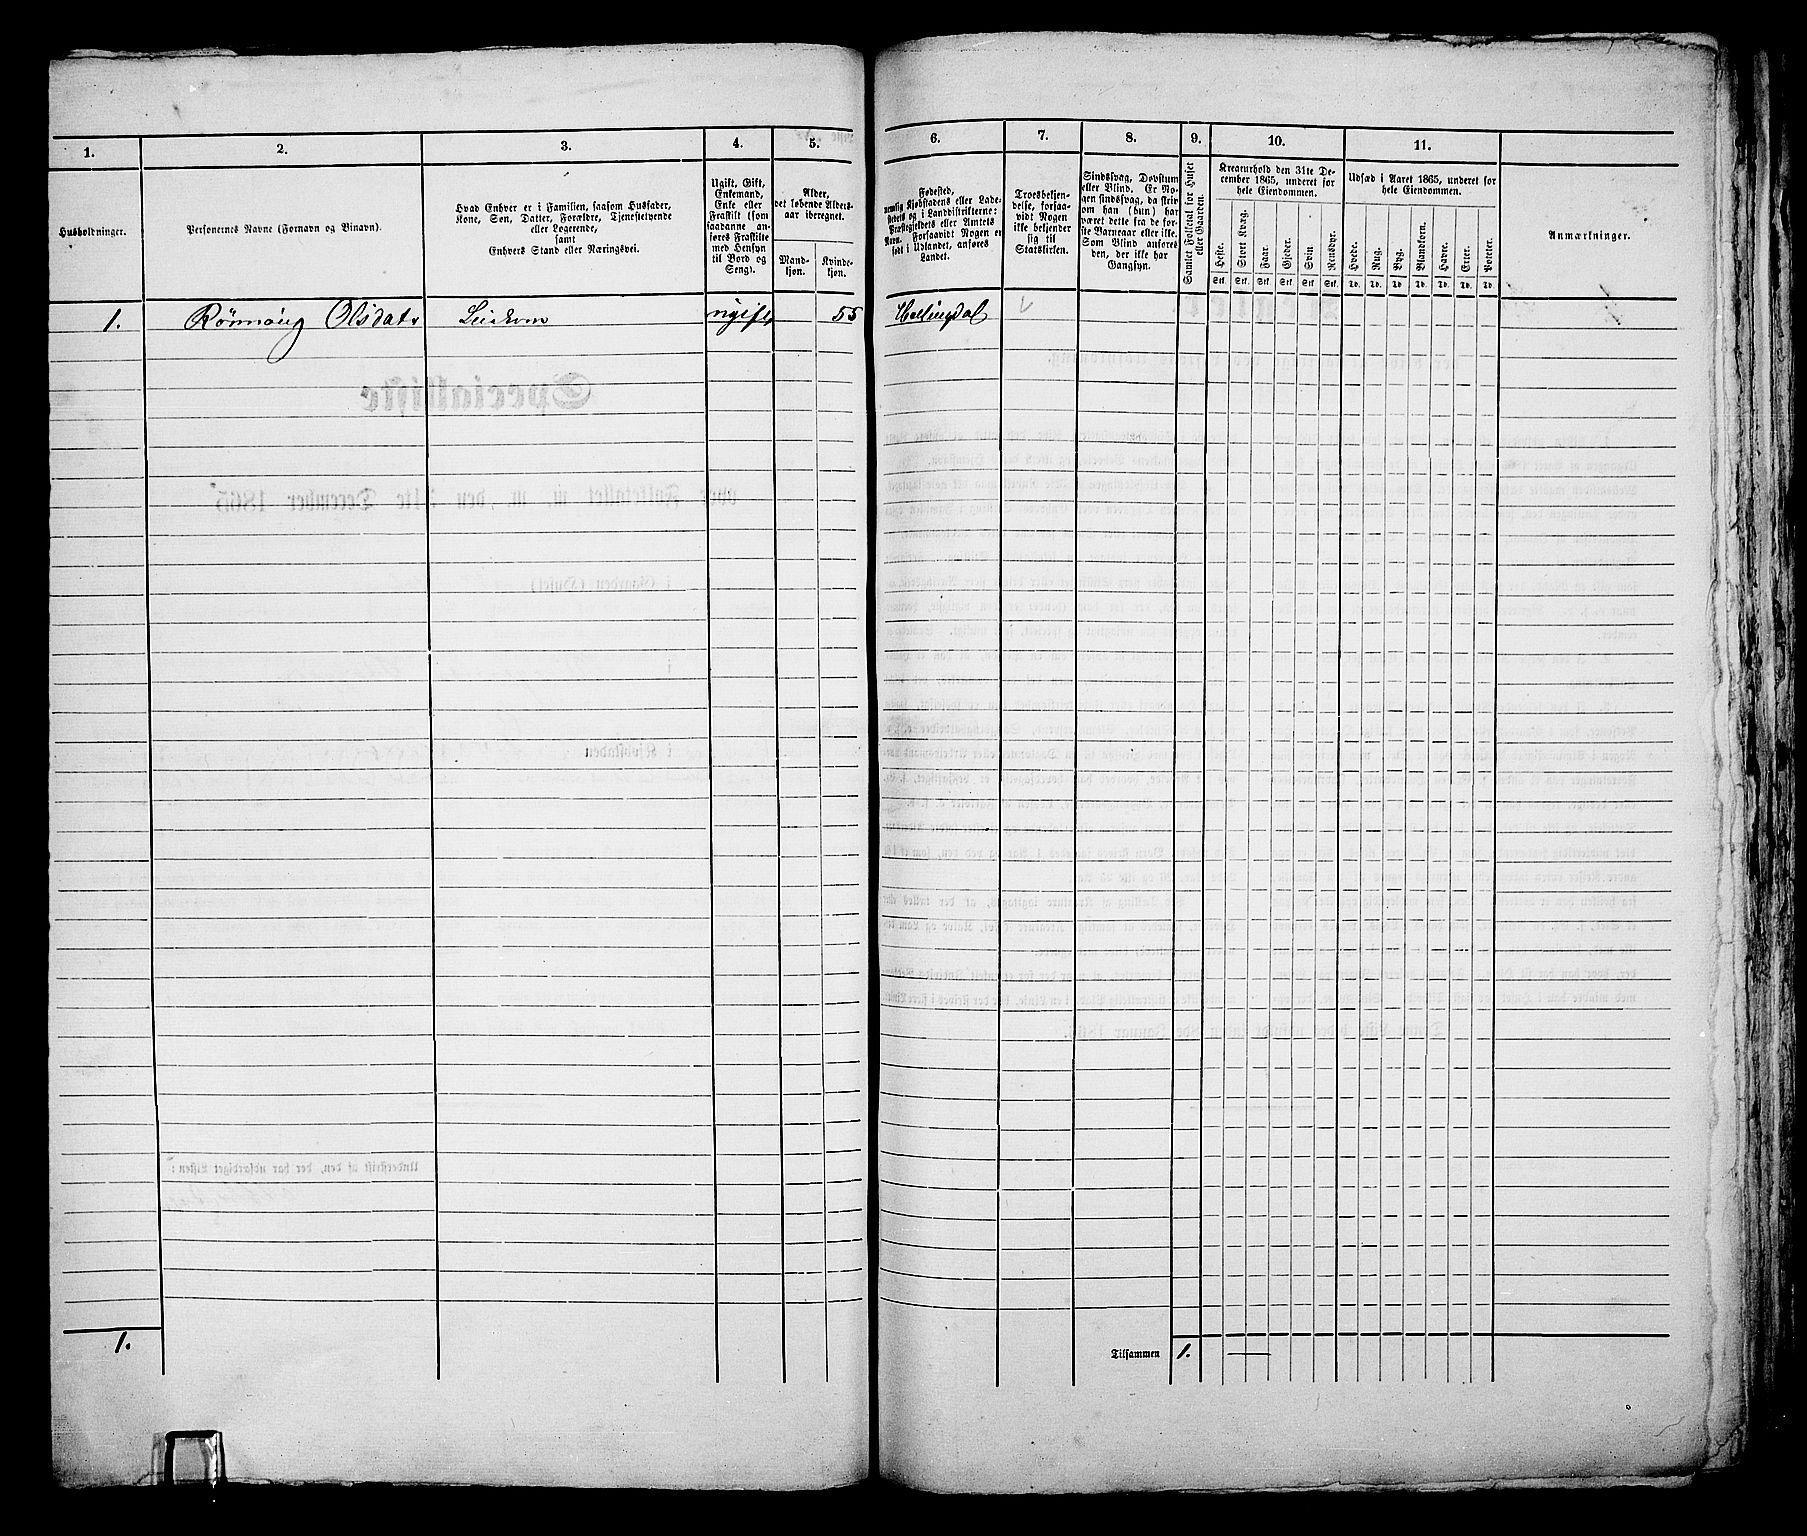 1.
2.
3.
4.
5.
6.
7.
8.
9.
10.
11.
Husholdninger.
Personernes Navne (Fornavn og Binavn).
Hvad Enhver er i Familien, saasom Husfader,
Kone, Søn, Datter, Forældre, Tjenestetyende
eller Logerende,
samt
Enhvers Stand eller Næringsvei.
Ugift, Gift,
Enkemand,
Enke eller
Fraskilt (som
saadanne an-
føres Fraskilte
med Hensyn
til Bord og
Seng).
Alder,
det løbende Alders-
aar iberegnet.
Mand-
kjøn.
Kvinde-
kjøn.
Fødested,
nemlig Kjøbstadens eller Lade-
stedets og i Landdistrikterne:
Præstegjeldets eller Amtets
Navn. Forsaavidt Nogen er
født i Udlandet, anføres
Landet.
Troesbekjen-
delse, forsaa-
vidt Nogen
ikke bekjender
sig til
Statskirken.
Sindssvag, Døvstum
eller Blind. Er No-
gen sindssvag, da skriv
om han (hun) har
været dette fra de før-
ste Barneaar eller ikke.
Som Blind anføres
den, der ikke har
Gangsyn.
Samlet Folketal for Huset
eller Gaarden.
Kreaturhold den 31te De-
cember 1865, underet for
hele Eiendommen.
Heste.
Stort Kvæg.
Faar.
Gjeder.
Svin.
Rensdyr.
Stk. Stk. Stk. Stk. Stk. Stk.
Udsæd i Aaret 1865, underet for
hele Eiendommen.
Hvede.
Rug.
Byg.
Blandkorn.
Havre.
Erter.
Poteter.
Td. Td. Td. Td. Td. Td. Td.
Anmærkninger.
1. Rønnaug Olsdatr ugift 55 Hallingdal
1.
Tilsammen 1.